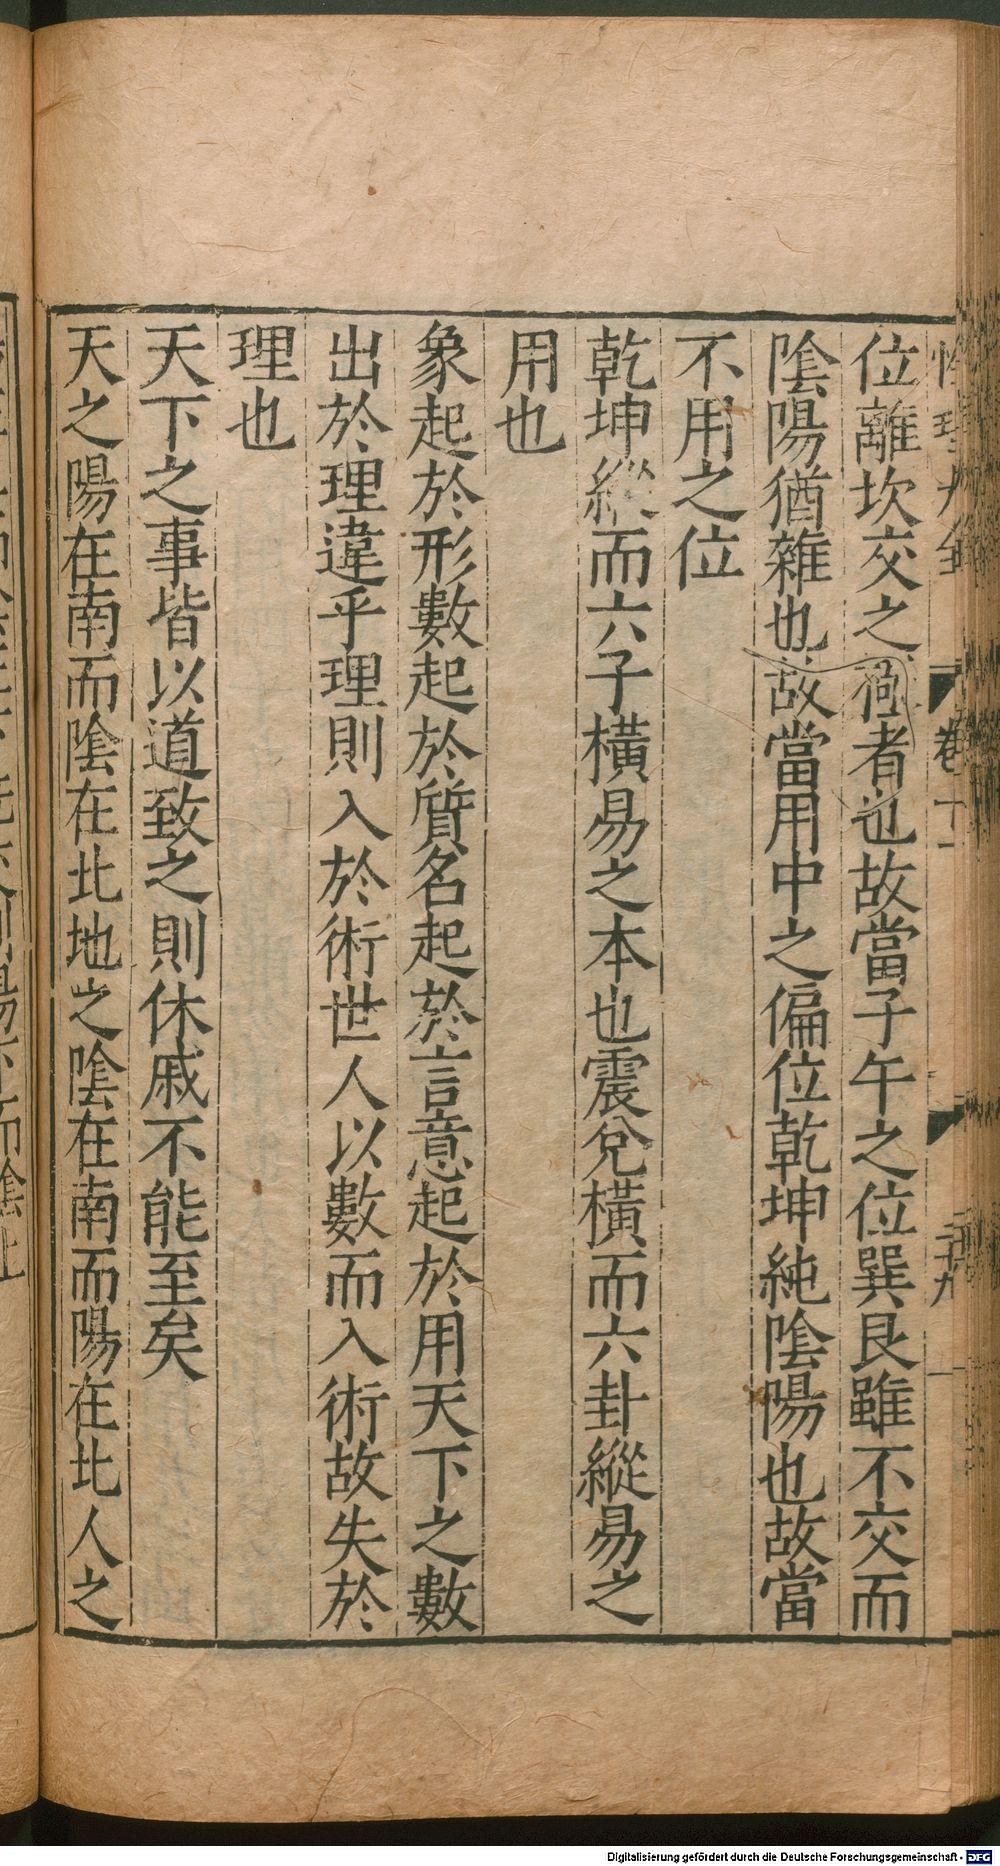 性理大全 卷十一 二十九
位離坎交之極者也故當子午之位巽艮雖不交而
陰陽猶雜也故當用中之偏位乾坤純陰陽也故當
不用之位
乾坤縱而六子橫易之本也震兌橫而六卦縱易之
用也
象起於形數起於質名起於言意起於用天下之數
出於理違乎理則入於術世人以數而入術故失於
理也
天下之事皆以道致之則休戚不能至矣
天之陽在南而陰在北地之陰在南而陽在北人之
Digitalisierung gefördert durch die Deutsche Forschungsgemeinschaft - DFG